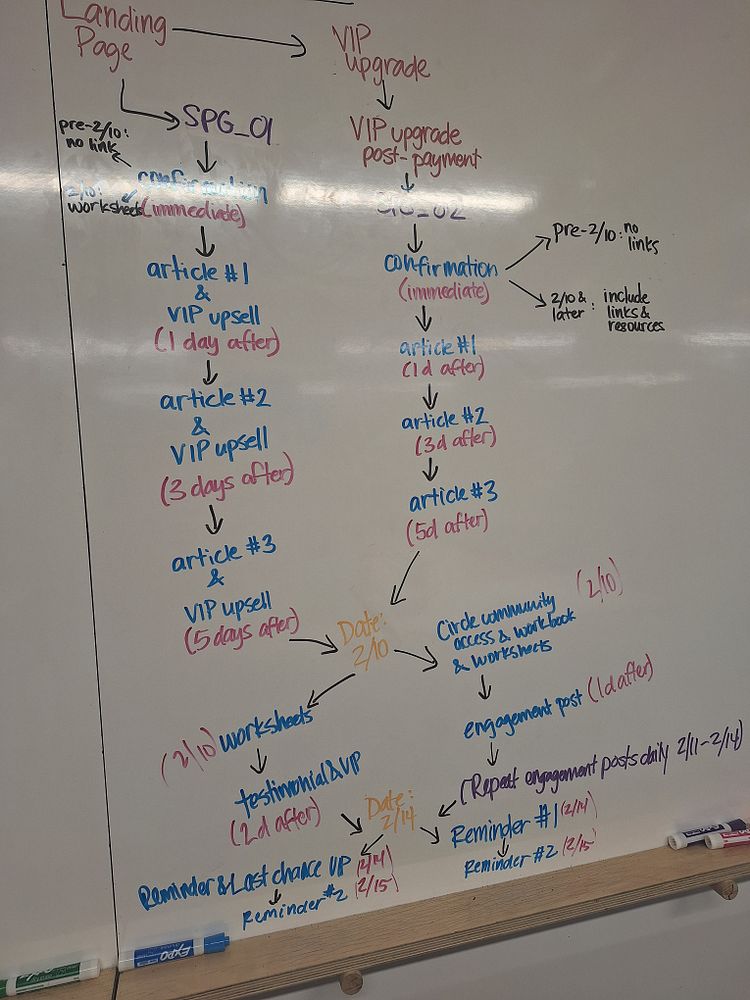 Landing
Page
VIP
upgrade
SPG_01
VIP upgrade
post-payment
pre-2/10:
no link
confirmation
(immediate)
2/10:
worksheets
confirmation
(immediate)
pre-2/10: no
links
2/10 &
later: include
links &
resources
article #1
&
VIP upsell
(1 day after)
article #1
(1d after)
article #2
&
VIP upsell
(3 days after)
article #2
(3d after)
article #3
(5d after)
article #3
&
VIP upsell
(5 days after)
Date:
2/10
Circle community
access & workbook
& worksheets
(2/10)
(2/10) worksheets
engagement post (1d after)
testimonial & VIP
(2d after)
(Repeat engagement posts daily 2/11-2/14)
Date:
2/14
Reminder #1 (2/14)
Reminder #2 (2/15)
Reminder & Last chance VIP (2/14)
Reminder #2 (2/15)
EXPO